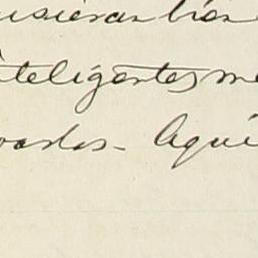 usieran bien
inteligentes me
vados - Aqui